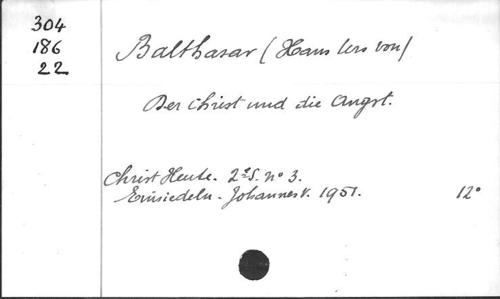 304
186
22
Balthasar (Hans Urs von)
Der Christ und die Angst.
Christ Heute. 2e S. no 3.
Einsiedeln - Johannes V. 1951.
12°